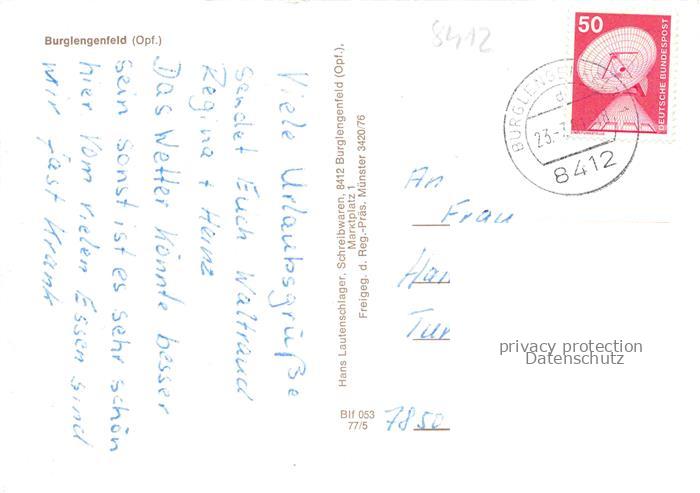 Burglengenfeld (Opf.)
8412
Viele Urlaubsgrüße
sendet Euch Waltraud
Regina + Heinz
Das Wetter könnte besser
sein sonst ist es sehr schön
hier vom vielen Essen sind
wir fast krank
Hans Lautenschlager, Schreibwaren, 8412 Burglengenfeld (Opf.),
Marktplatz 1
Freigeg. d. Reg.-Präs. Münster 3420/76
Blf 053
77/5
50
DEUTSCHE BUNDESPOST
23.
8412
An
Frau
7850
privacy protection
Datenschutz